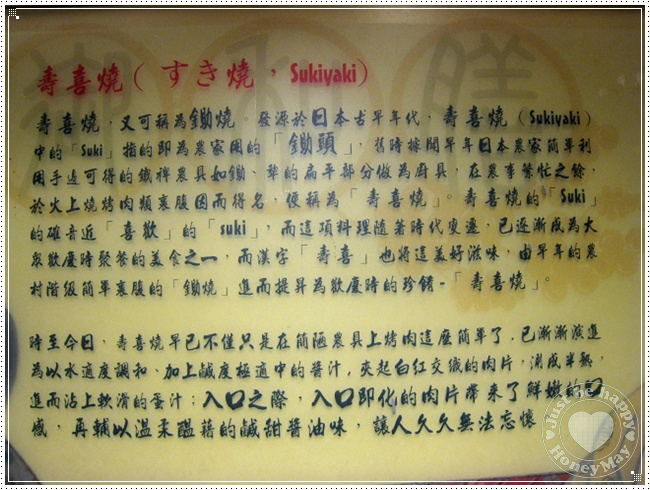 壽喜燒(すき燒，Sukiyaki)
壽喜燒，又可稱為鋤燒。發源於日本古早年代，壽喜燒(Sukiyaki)
中的「Suki」指的即為農家因的「鋤頭」，舊時據聞早年日本農家簡單利
用手邊可得的鐵裡農具如鋤、犂的扁平部分做為廚具，在農事繁忙之餘，
於火上燒烤肉類裹腹因而得名，便稱為「壽喜燒」。壽喜燒的「Suki」
的確音近「喜歡」的「suki」，而這項料理隨著時代變遷，已逐漸成為大
眾歡慶時聚餐的美食之一，而漢字「壽喜」也將這美好滋味，由早年的農
村階級簡單裹腹的「鋤燒」進而提昇為歡慶時的珍餚-「壽喜燒」。
時至今日，壽喜燒早已不僅只是在簡陋農具上烤肉這麼簡單了，已漸漸演進
為以水適度調和、加上鹹度極適中的醬汁，夾起白紅交織的肉片，涮成半熟，
進而沾上軟滑的蛋汁；入口之際，入口即化的肉片帶來了鮮嫩的口
感，再輔以溫柔醞藉的鹹甜醬油味，讓人久久無法忘懷
Just be happy
HoneyMay